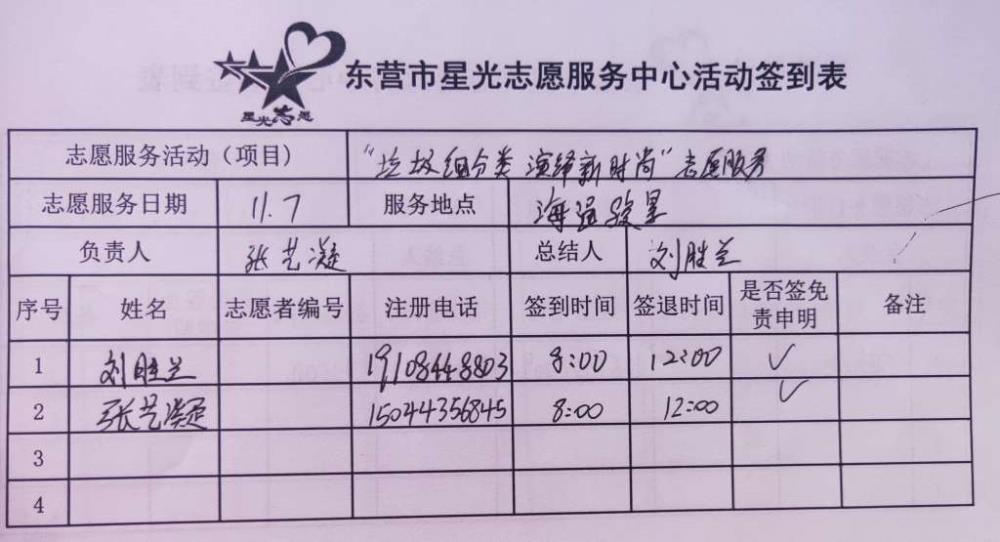 星光志愿
东营市星光志愿服务中心活动签到表
志愿服务活动（项目） “垃圾细分类 演绎新时尚”志愿服务
志愿服务日期 11.7 服务地点 海通骏景
负责人 张艺凝 总结人 刘胜兰
序号 姓名 志愿者编号 注册电话 签到时间 签退时间 是否签免责申明 备注
1 刘胜兰 19108448803 8:00 12:00 ✓
2 张艺凝 15044356845 8:00 12:00 ✓
3
4